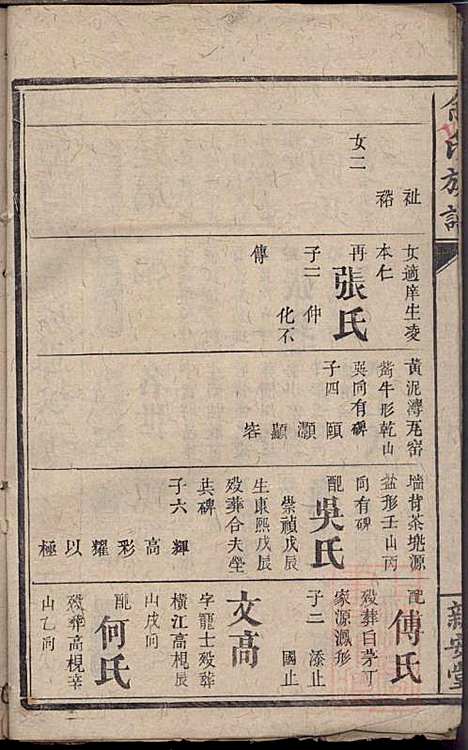 氏族譜
新安堂
祉
裕
女二
女適庠生凌
本仁
再張氏
子二 仲
化不
傳
黃泥灣瓦窑
觜牛形乾山
吳同有碑
子四 頤
灝
顯
容
墙背茶堯源
益形壬山丙
向有碑
配吳氏
崇禎戊辰
生康熙戊辰
殁葬合夫塋
共碑
子六 輝
高
彩
耀
以
極
配傅氏
殁葬白茅丁
家源鳳形
子二 添止
國止
文高
字龍士殁葬
橫江高梘辰
山戌向
配何氏
殁葬高梘辛
山乙向